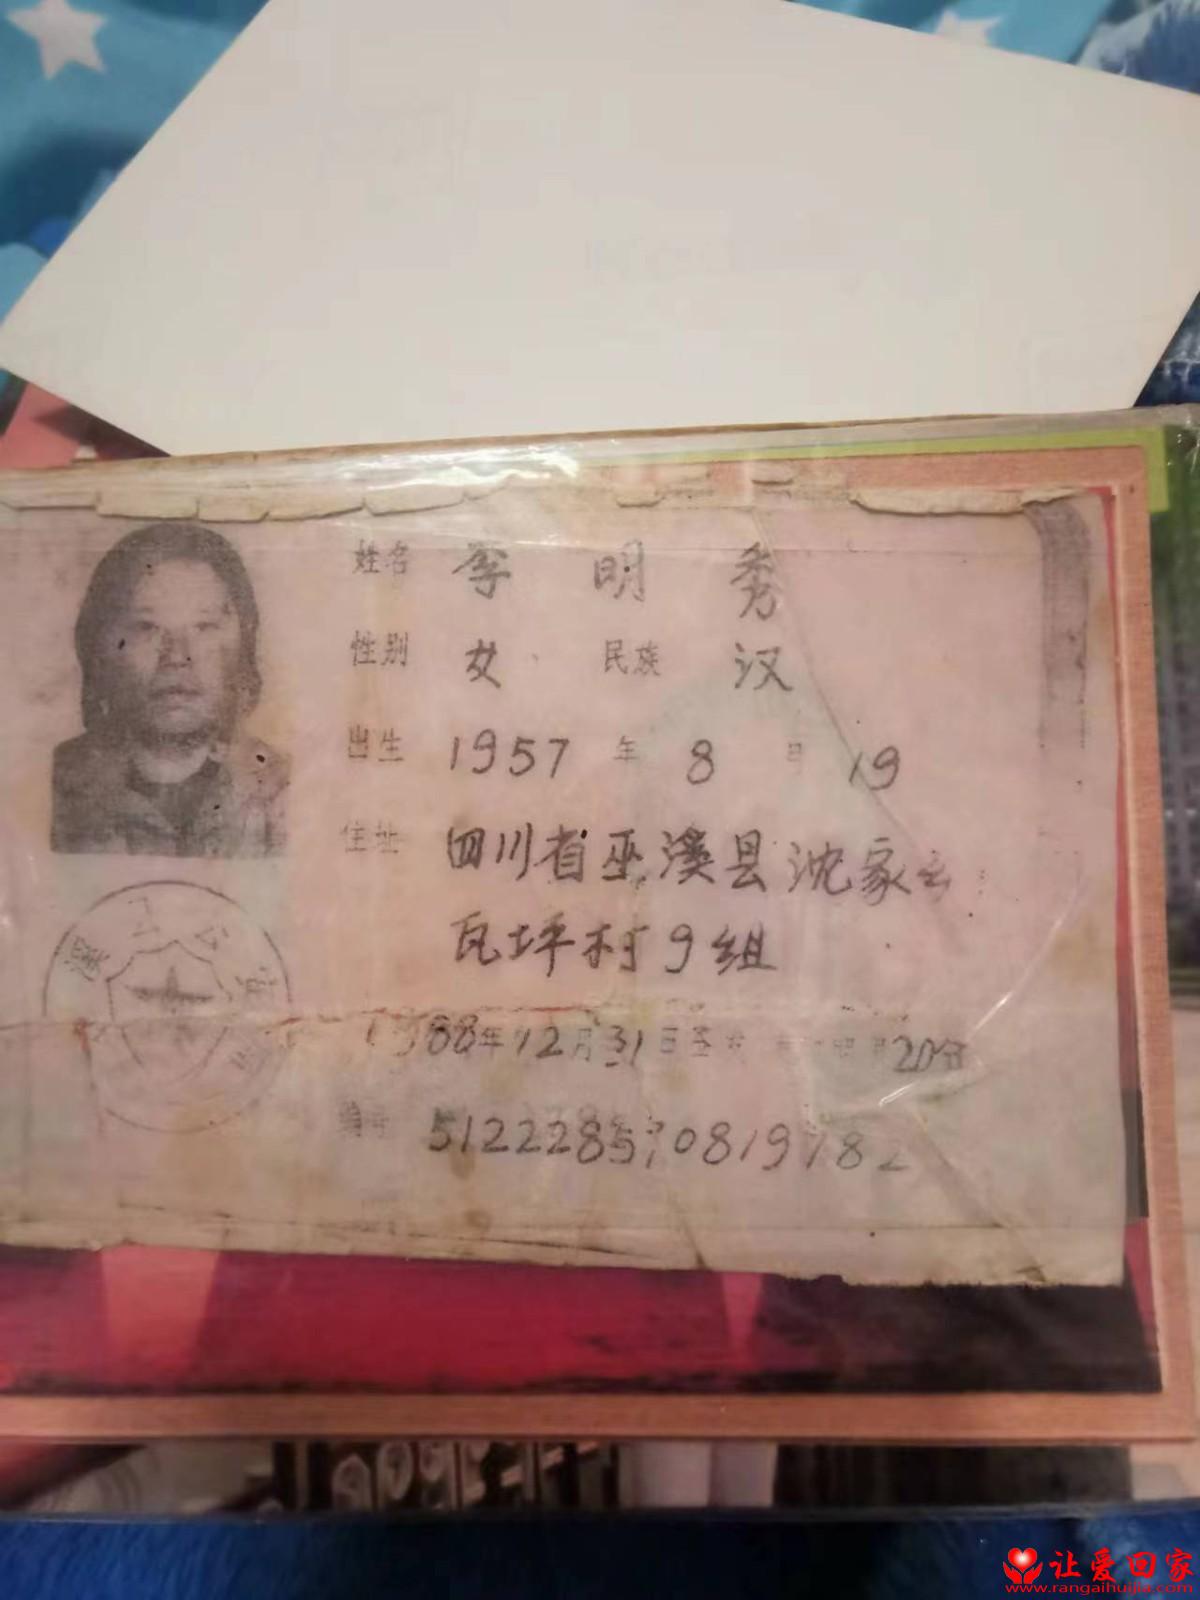 姓名 李明秀
性别 女 民族 汉
出生 1957年8月19
住址 四川省巫溪县沈家
瓦坪村9组
1988年12月31日签
20
编号
溪 公
让爱回家
www.rangaihuijia.com